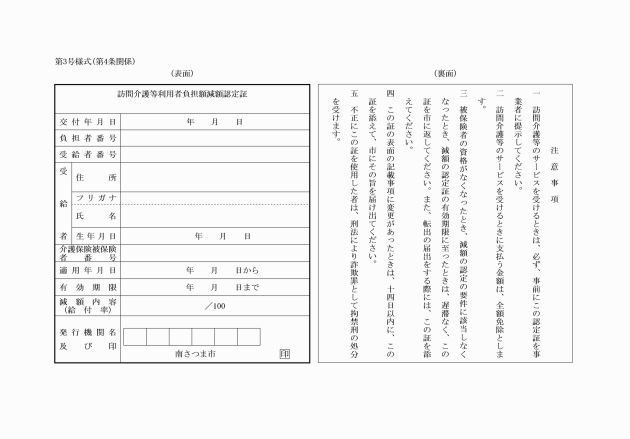 第3号様式(第4条関係)
(表面)
訪問介護等利用者負担額減額認定証
交付年月日 年 月 日
負担者番号
受給者番号
受給者
住所
フリガナ
氏名
生年月日 年 月 日
介護保険被保険
者番号
適用年月日 年 月 日から
有効期限 年 月 日まで
減額内容
(給付率)
／100
発行機関名
及び印
南さつま市 印
(裏面)
注意事項
一 訪問介護等のサービスを受けるときは、必ず、事前にこの認定証を事
業者に提示してください。
二 訪問介護等のサービスを受けるときに支払う金額は、全額免除としま
す。
三 被保険者の資格がなくなったとき、減額の認定の要件に該当しなく
なったとき、減額の認定証の有効期限に至ったときは、遅滞なく、この
証を市に返してください。また、転出の届出をする際には、この証を添
えてください。
四 この証の表面の記載事項に変更があったときは、十四日以内に、この
証を添えて、市にその旨を届け出てください。
五 不正にこの証を使用した者は、刑法により詐欺罪として拘禁刑の処分
を受けます。